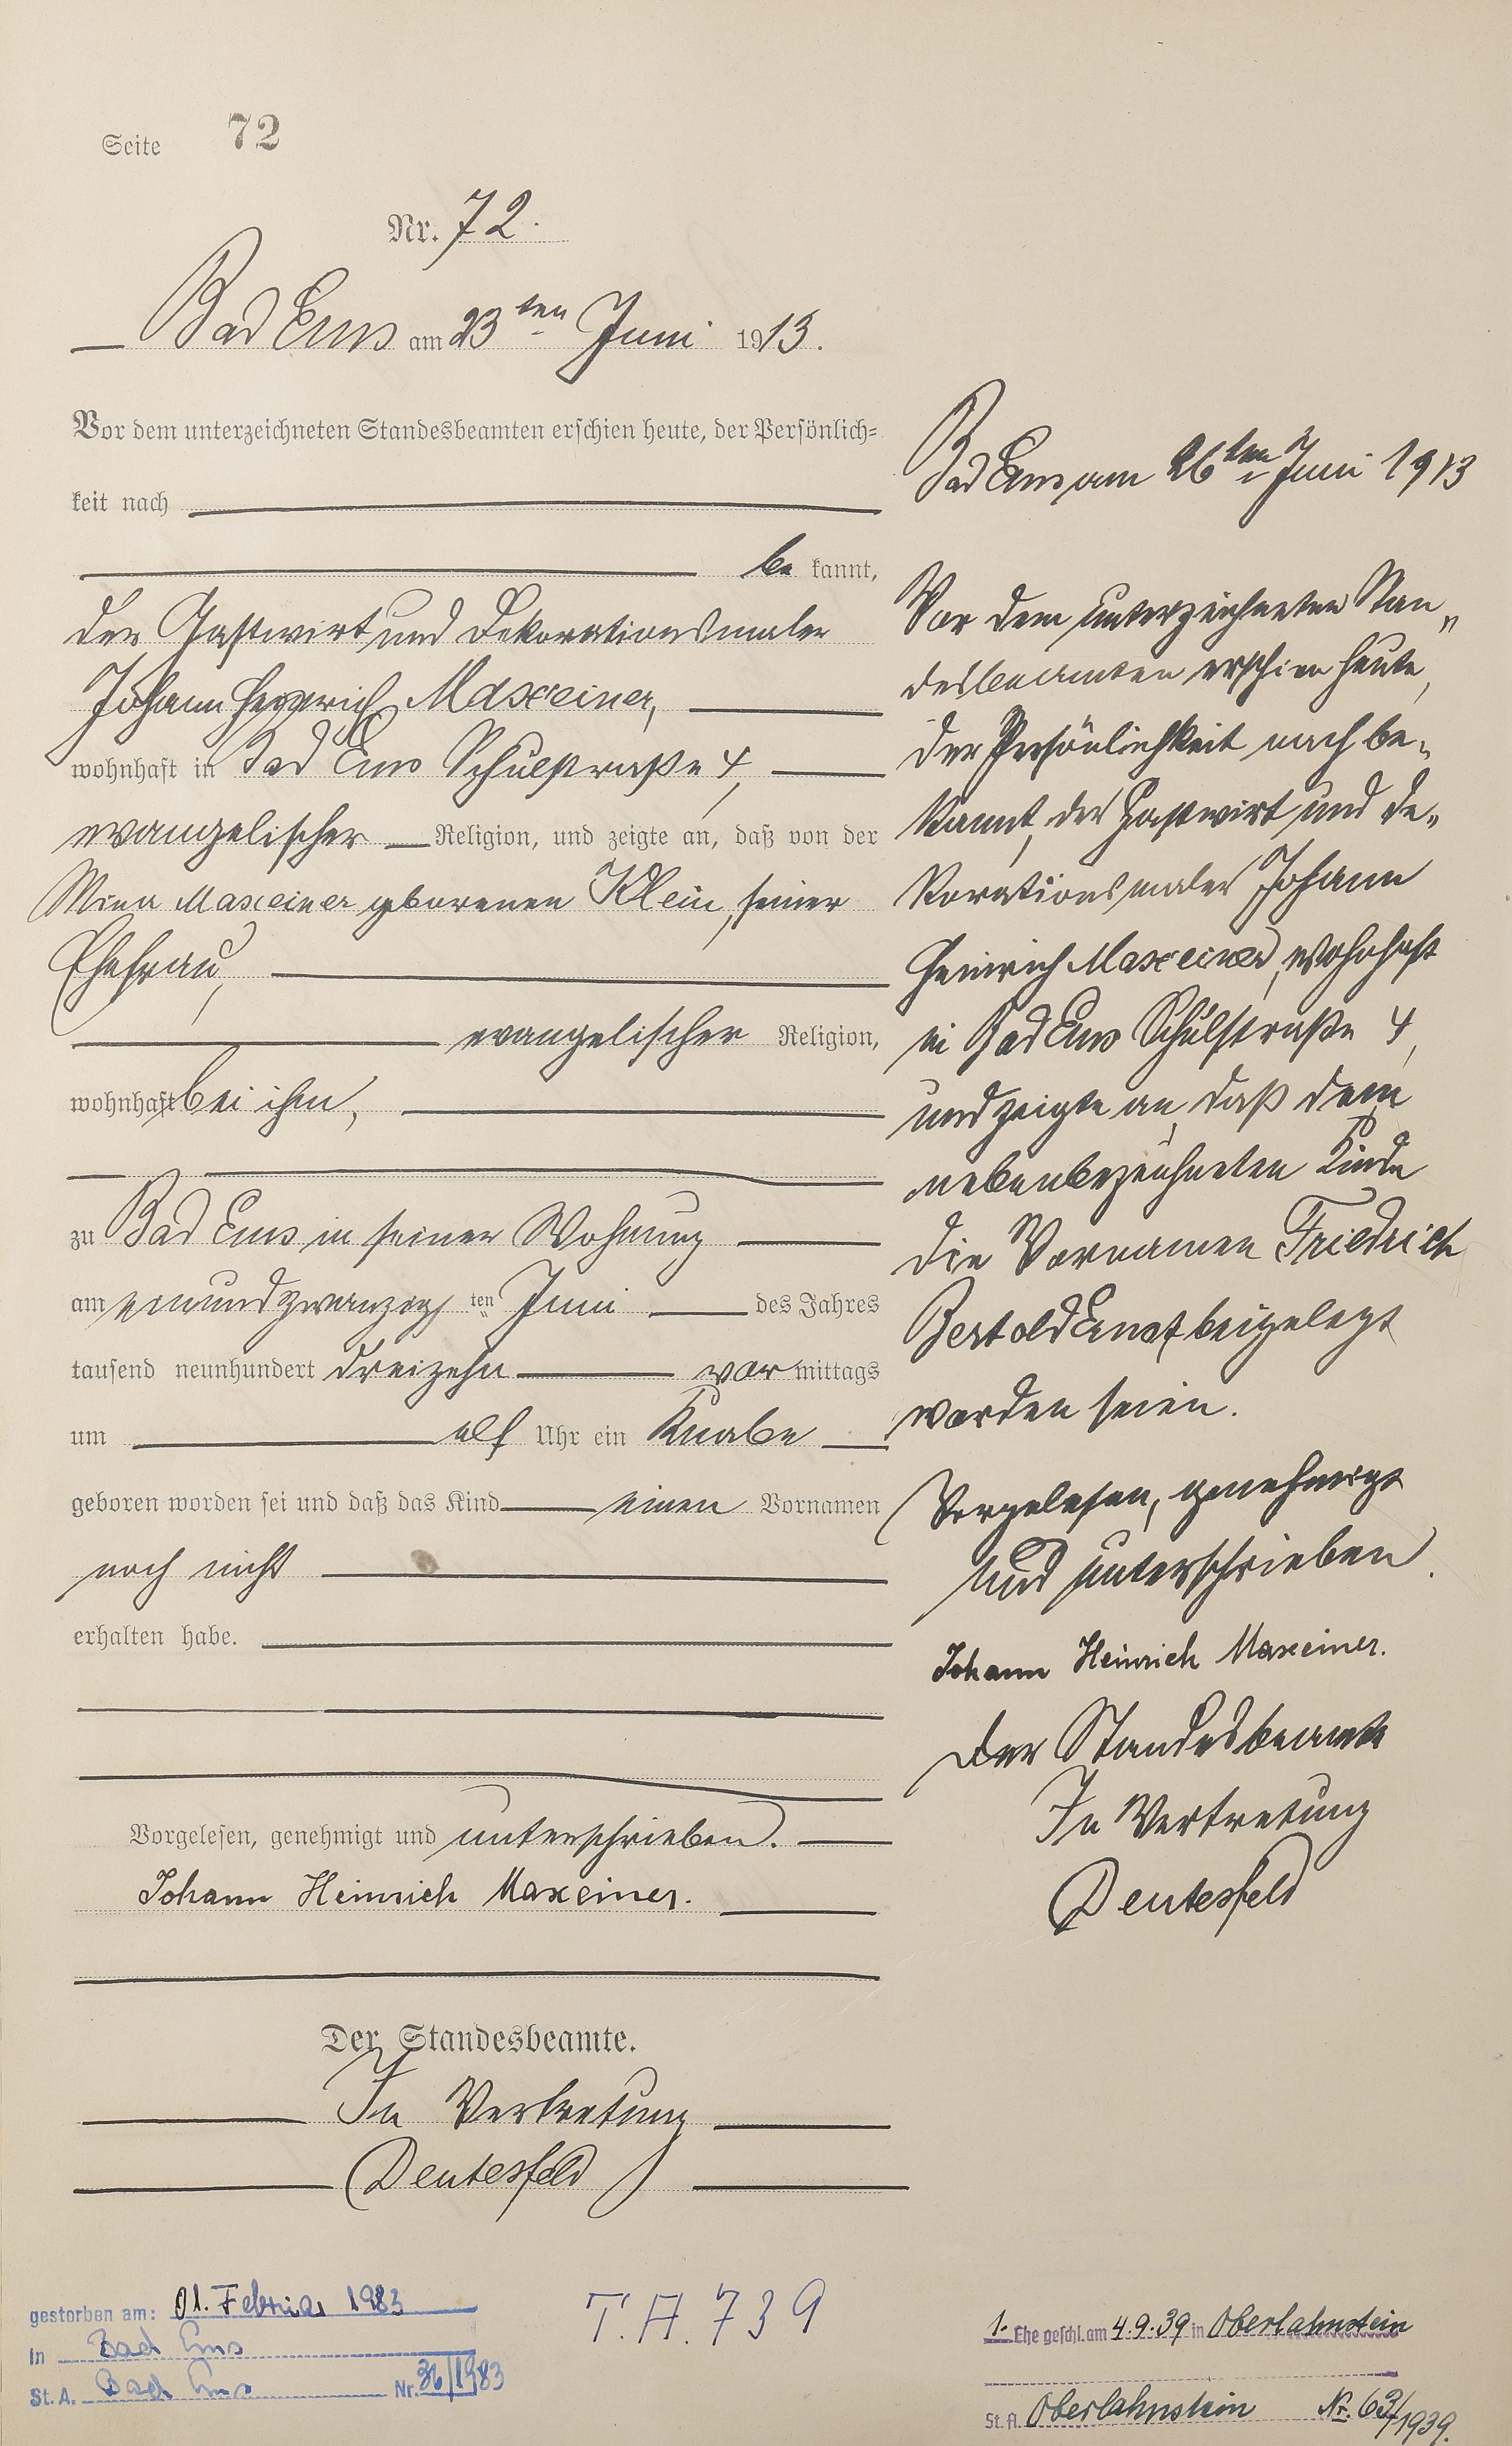 Seite 72
Nr. 72.
Bad Ems am 23ten Juni 1913.
Vor dem unterzeichneten Standesbeamten erschien heute, der Persönlich=
keit nach
be kannt,
der Gastwirt und Dekorationsmaler
Johann Heinrich Maxeiner,
wohnhaft in Bad Ems Schulstraße 4,
evangelischer Religion, und zeigte an, daß von der
Mina Maxeiner geborenen Klein, seiner
Ehefrau,
evangelischer Religion,
wohnhaft bei ihm,
zu Bad Ems in seiner Wohnung
am einundzwanzig ten Juni des Jahres
tausend neunhundert dreizehn vor mittags
um elf Uhr ein Knabe
geboren worden sei und daß das Kind einen Vornamen
noch nicht
erhalten habe.
Vorgelesen, genehmigt und unterschrieben.
Johann Heinrich Maxeiner.
Der Standesbeamte.
In Vertretung
Deutesfeld
Bad Ems am 26ten Juni 1913
Vor dem unterzeichneten Stan„
desbeamten erschien heute,
der Persönlichkeit nach be„
kannt, der Gastwirt und De„
korationsmaler Johann
Heinrich Maxeiner, wohnhaft
in Bad Ems Schulstraße 4,
und zeigte an, daß dem
nebenbezeichneten Kinde
die Vornamen Friedrich
Bertold Ernst beigelegt
worden seien.
Vorgelesen, genehmigt
und unterschrieben.
Johann Heinrich Maxeiner.
Der Standesbeamte
In Vertretung
Deutesfeld
gestorben am: 01. Februar 1983
in Bad Ems
St. A. Bad Ems Nr. 36/1983
T.A. 739
1. Ehe geschl. am 4.9.39 in Oberlahnstein
St. A. Oberlahnstein Nr. 63/1939.